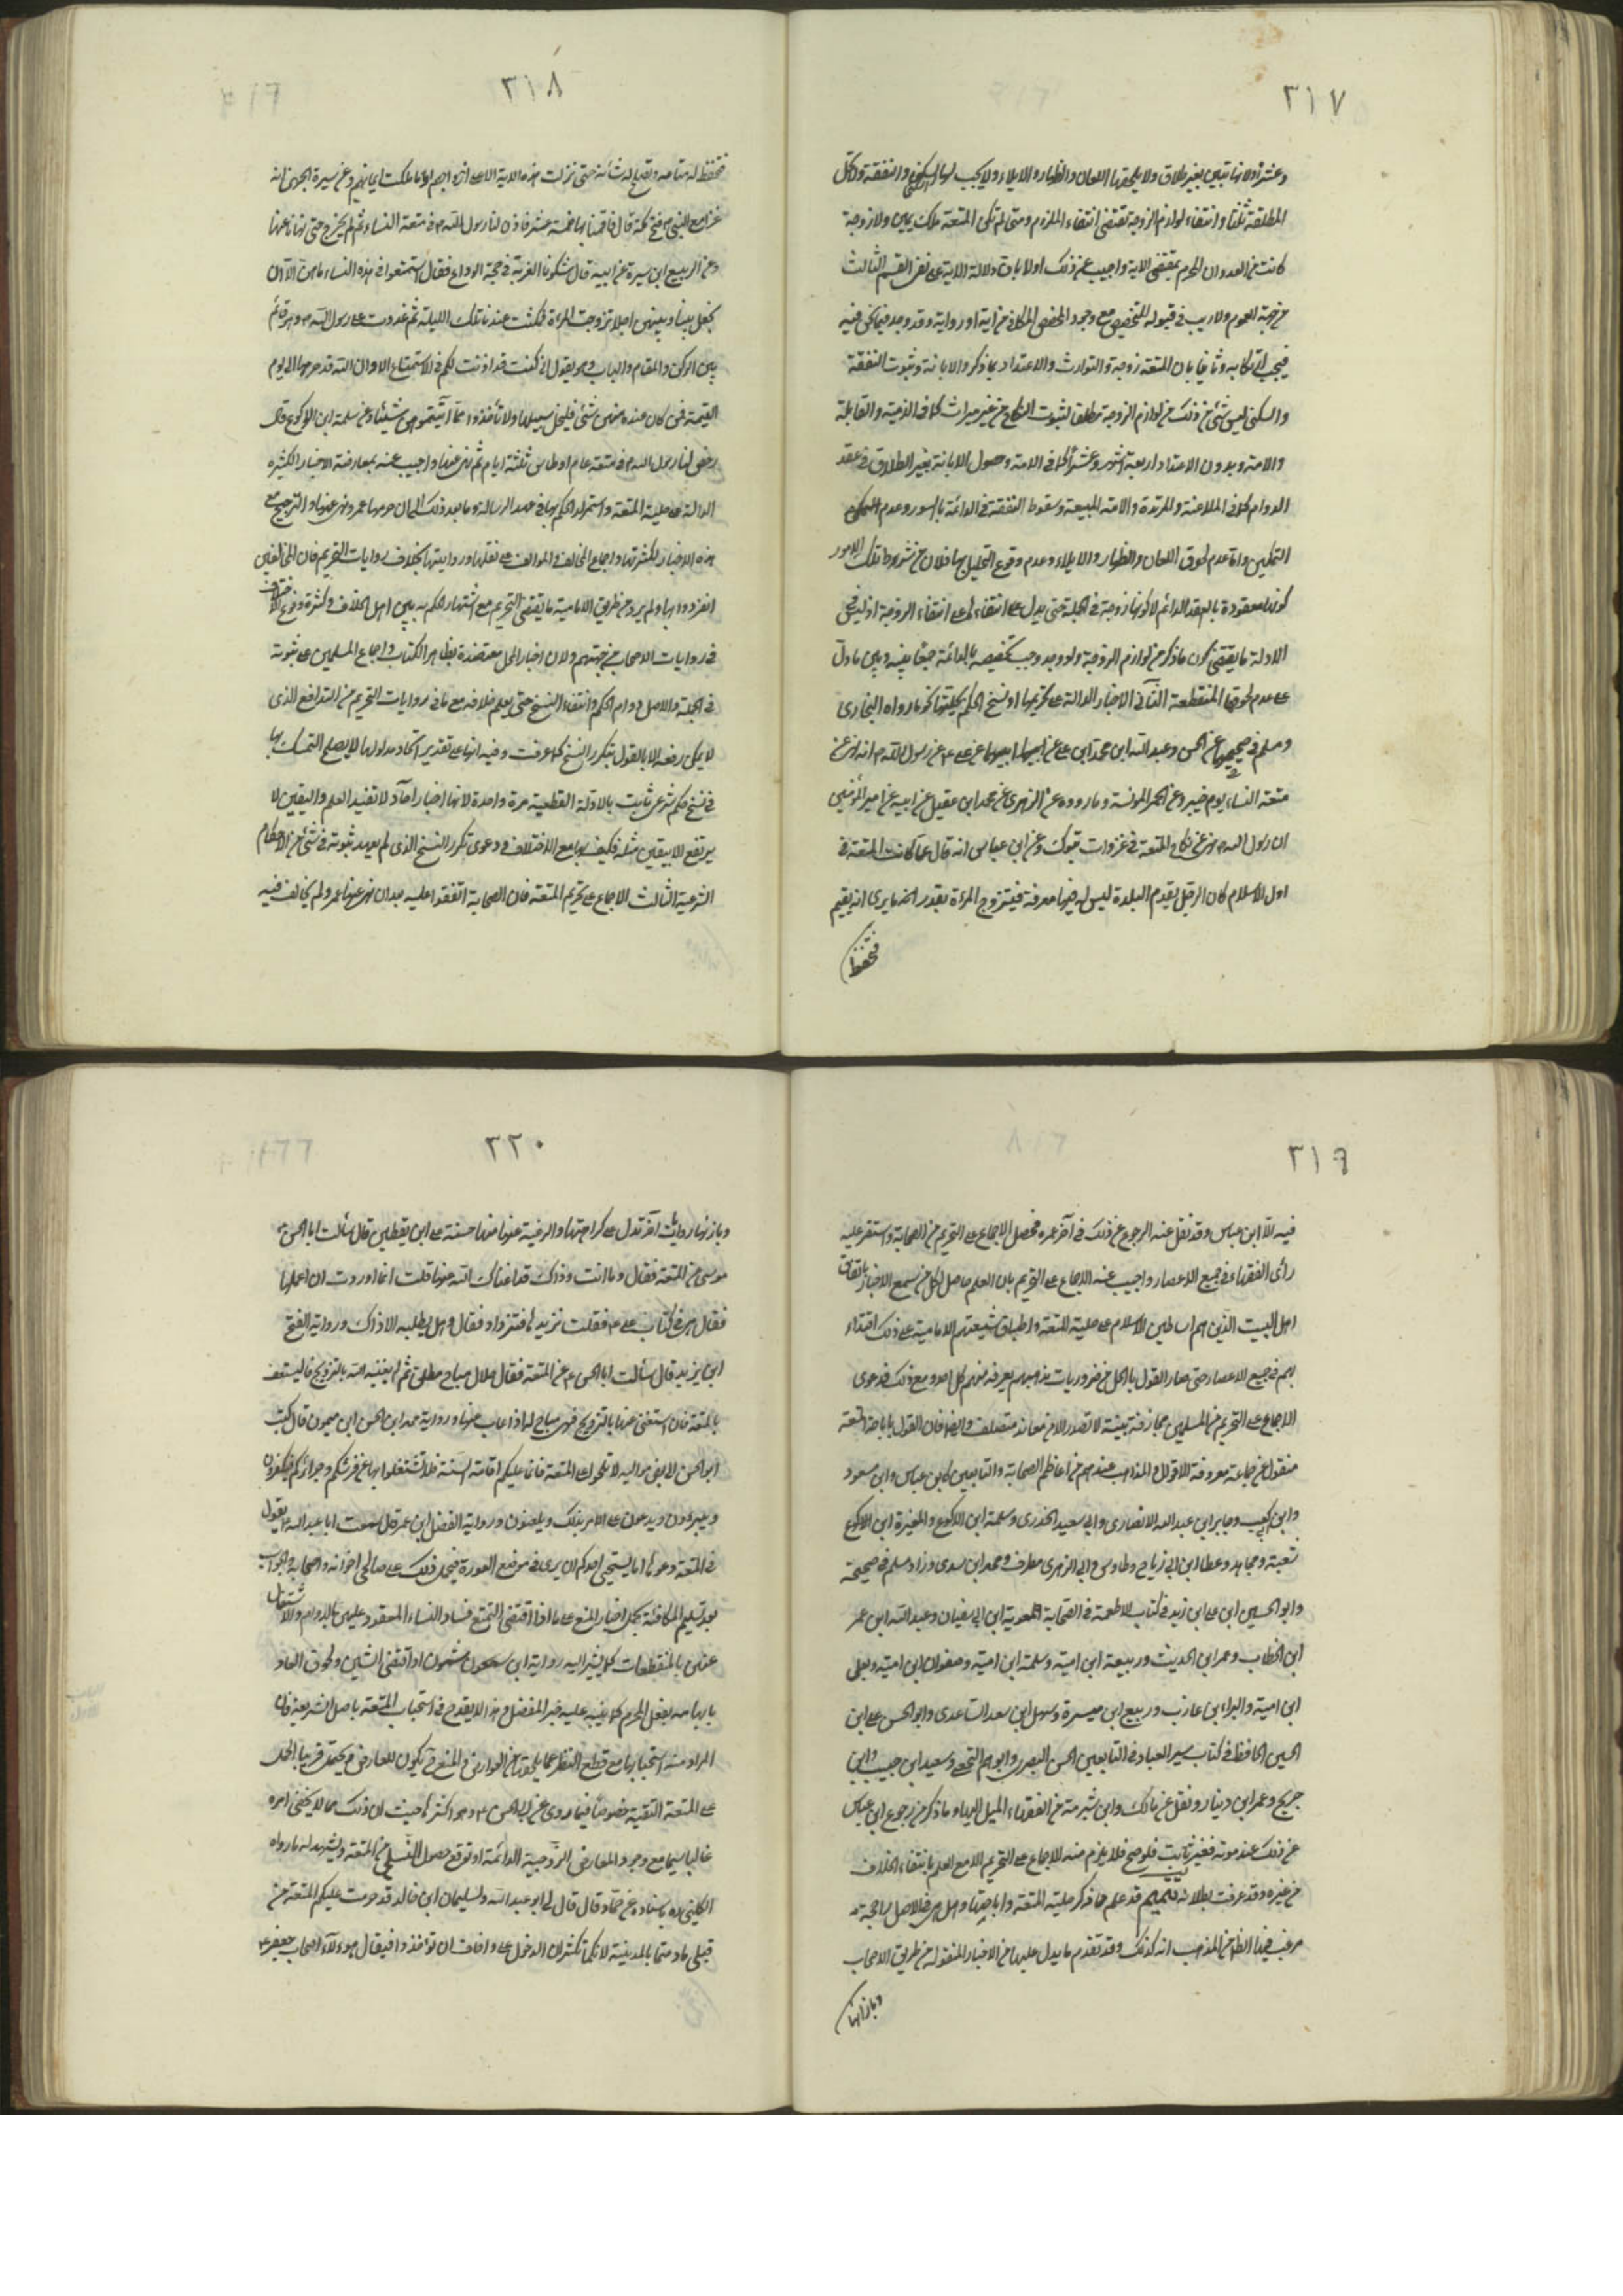 ٣١٧
وعشرا ولانها تبين بغير طلاق ولا يلحقها اللعان والظهار والايلاء ولا يجب لها السكنى والنفقة ولا تحل
المطلقة ثلثا وانتفاء لوازم الزوجية تقتضى انتفاء الملزوم ومتى لم تكن المتعة ملك يمين ولا زوجة
كانت من العدوان المحرم بمقتضى الاية واجيب عن ذلك اولا بان دلالة الاية على نفى القسم الثالث
من جهة العموم ولا ريب فى قبوله للتخصيص مع وجود المخصص المكافى من اية او رواية وقد وجد فيما نحن فيه
فيجب ارتكابه وثانيا بان المتعة زوجة والتوارث والاعتداد بما ذكر والابانة وثبوت النفقة
والسكنى ليس شئ من ذلك من لوازم الزوجية مطلقا لثبوت النكاح من غير ميراث كما فى الذمية والقاتلة
والامة وبدون الاعتداد اربعة اشهر وعشرا كما فى الامة وحصول الابانة بغير الطلاق فى عقد
الدوام كما فى الملاعنة والمرتدة والامة المبيعة وسقوط النفقة فى الدائمة بالنشوز وعدم التمكين
التمكين واما عدم لحوق اللعان والظهار والايلاء وعدم وقوع التحليل بها فلان من شروط تلك الامور
كونها معقودة بالعقد الدائم لا كونها زوجة فى الجملة حتى يدل على انتفاء على انتفاء الزوجية اذ ليس فى
الادلة ما يقتضى كون ما ذكر من لوازم الزوجية ولو وجد وجب تخصيصه بالدائمة جمعا بينه وبين ما دل
على عدم لحوقها المنقطعة الثانى الاخبار الدالة على تحريمها او نسخ الحكم بحليتها كخبر ما رواه البخارى
ومسلم فى صحيحيهما عن الحسن وعبد الله ابن محمد ابن على عن ابيهما عن على ع عن رسول الله ص انه نهى عن
متعة النساء يوم خيبر وعن الحمر الانسية وما رووه عن الزهرى عن محمد ابن عقيل عن ابيه عن امير المؤمنين
ان رسول الله ص نهى عن نكاح المتعة فى غزوات تبوك وعن ابن عباس انه قال كانت المتعة فى
اول الاسلام كان الرجل يقدم البلدة ليس له فيها معرفة فيتزوج المرءة بقدر ما يرى انه يقيم
فتحفظ
٣١٨
فتحفظ له متاعه وتصلح له شأنه حتى نزلت هذه الاية الا على ازواجهم او ما ملكت ايمانهم وعن سبرة الجهنى انه
غزا مع النبى ص فتح مكة قال فاقمنا بها خمسة عشر فاذن لنا رسول الله ص فى متعة النساء ثم لم يخرج حتى نهانا عنها
وعن الربيع ابن سبرة عن ابيه قال شكونا العزبة فى حجة الوداع فقال استمتعوا من هذه النساء فابين الا ان
نجعل بيننا وبينهن اجلا تزوجت امرءة فمكثت عندها تلك الليلة ثم غدوت على رسول الله ص وهو قائم
بين الركن والمقام والباب وهو يقول انى كنت قد اذنت لكم فى الاستمتاع الا وان الله قد حرمها الى يوم
القيمة فمن كان عنده منهن شئ فليخل سبيلها ولا تأخذوا مما آتيتموهن شيئا وعن سلمة ابن الاكوع قال
رخص لنا رسول الله ص فى متعة عام اوطاس ثلثة ايام ثم نهى عنها واجيب عنه بمعارضة الاخبار الكثيره
الدالة على حلية المتعة واستمرار الحكم بها فى عهد الرسالة وما بعد ذلك الى ان حرمها عمر ونهى عنها والترجيح مع
هذه الاخبار لكثرتها واجماع المخالف والموالف على نقلها وروايتها بخلاف روايات التحريم فان المخالفين
انفردوا بها ولم يرو من طريق الامامية ما يقتضى التحريم مع اشتهار الحكم به بين اهل الخلاف وكثرة وقوع الاختلاف
فى روايات الاصحاب من جهتهم ولان اخبار الحل معتضدة بظاهر الكتاب واجماع المسلمين على ثبوته
فى الجملة والاصل دوام الحكم وانتفاء النسخ حتى يعلم خلافه مع ما فى روايات التحريم من التدافع الذى
لا يمكن رفعه الا بالقول بتكرر النسخ كما عرفت وفيه انها على تقدير اتحاد مدلولها لا يصلح التمسك بها
فى نسخ حكم شرعى ثابت بالادلة القطعية مرة واحدة لانها اخبار آحاد لا تفيد العلم واليقين لا
يرتفع الا بيقين مثله فكيف بها مع الاختلاف ودعوى تكرر النسخ الذى لم يعهد ثبوته فى شئ من الاحكام
الشرعية الثالث الاجماع على تحريم المتعة فان الصحابة اتفقوا عليه بعد ان نهى عنها عمر ولم يخالف فيه
٣١٩
فيه الا ابن عباس وقد نقل عنه الرجوع عن ذلك فى آخر عمره فحصل الاجماع على التحريم من الصحابة واستقر عليه
رأى الفقهاء فى جميع الاعصار واجيب عنه الاجماع على التحريم بان العلم حاصل لكل من سمع الاخبار باتفاق
اهل البيت الذين هم اساطين الاسلام على حلية المتعة واطباق شيعتهم الامامية على ذلك اقتداء
بهم فى جميع الاعصار حتى صار القول بالحل من ضروريات مذهبهم يعرفه منهم كل احد ومع ذلك فدعوى
الاجماع على التحريم من المسلمين مجازفة بينة لا تصدر الا من معاند متعسف وايضا فان القول باباحة المتعة
منقول عن جماعة معروفة الاقوال والمذاهب عندهم من اعاظم الصحابة والتابعين كابن عباس وابن مسعود
وابن كعب وجابر ابن عبد الله الانصارى وابى سعيد الخدرى وسلمة ابن الاكوع والمغيرة ابن
شعبة ومجاهد وعطا ابن ابى رباح وطاوس والزهرى مطرف ومحمد ابن سدى وزاد مسلم فى صحيحه
وابو الحسين ابن على ابن زيد فى كتاب الاطعمة فى الصحابة المعوية ابن ابى سفيان وعبد الله ابن عمر
ابن الخطاب وعمر ابن الحديث وربيعة ابن امية وسلمة ابن امية وصفوان ابن امية ويعلى
ابن امية والبراء بن عازب وربيع ابن ميسرة وسهل ابن سعد الساعدى وابو الحسن على ابن
الحسين الحافظ فى كتاب سير العباد فى التابعين الحسن البصرى وابراهيم النخعى وسعيد ابن حبيب وابن
جريج وعمر ابن دينار ونقل عن مالك وابن شبرمة من الفقهاء الميل اليها وما ذكر من رجوع ابن عباس
عن ذلك عند موته فغير ثابت فلو صح فلا يلزم منه الاجماع على التحريم الا مع العلم بانتفاء الخلاف
من غيره وقد عرفت بطلانه تتميم قد علم مما ذكر حلية المتعة واباحتها وهل هى فى الاصل راجحة
مرغب فيها الظاهر من المذهب انه كذلك وقد تقدم ما يدل عليها من الاخبار المنقولة من طريق الاصحاب
وبازائها
٣٢٠
وبازائها روايات آخر تدل على كراهتها والرغبة عنها منها حسنة على ابن يقطين قال سألت ابا الحسن ع
موسى عن المتعة فقال وما انت وذاك قد اغناك الله عنها قلت انما اردت ان اعلمها
فقال هى فى كتاب على ع فقلت نزيدها وتزداد فقال وهل يطيبه الا ذاك ورواية الفتح
ابن يزيد قال سألت ابا الحسن ع عن المتعة فقال حلال مباح مطلق لمن لم يغنه الله بالتزويج فليستعفف
بالمتعة فان استغنى عنها بالتزويج فهى مباح له اذا غاب عنها ورواية محمد ابن الحسن ابن ميمون قال كتب
ابو الحسن الى بعض مواليه لا تلحوا على المتعة فانما عليكم اقامة السنة فلا تشتغلوا بها عن فرشكم وحرائركم فيكفرن
ويتبرءون ويدعون على الامر بذلك ويلعنون ورواية المفضل ابن عمر قال سمعت ابا عبد الله ع يقول
فى المتعة دعوها اما يستحيى احدكم ان يرى فى موضع العورة فيحمل ذلك على صالحى اخوانه واصحابه والجواب
بعد تسليم المكافئة بحمل اخبار المنع على ما اذا اقتضى التمتع فساد النساء المعقود عليهن بالدوام والاشتغال
عنهن بالمنقطعات كما يشير اليه رواية ابن شمون او اقتضى الشين ولحوق العار
بارتكابه بفعل المحرم كما ينبه عليه خبر المفضل وهذا لا يقدح فى استحباب المتعة باصل الشريعة فان
المراد منه استحبابها مع قطع النظر عما يلحقها من العوارض والمنع يكون للعارض ويحتمل قريبا الحمل
على المتعة التقية خصوصا فيما روى عن ابى الحسن ع وهو اكثرها حيث ان ذلك مما لا يخفى امره
غالبا سيما مع وجود المعارض الزوجية الدائمة او توقع حصول النسل من المتعة ويشهد له ما رواه
الكلينى ره باسناده عن عمار قال قال لى ابو عبد الله ولسليمان ابن خالد قد حرمت عليكم المتعة من
قبلى ما دمتما بالمدينة لانكما تكثران الدخول على واخاف ان تؤخذوا فيقال هؤلاء اصحاب جعفر ع